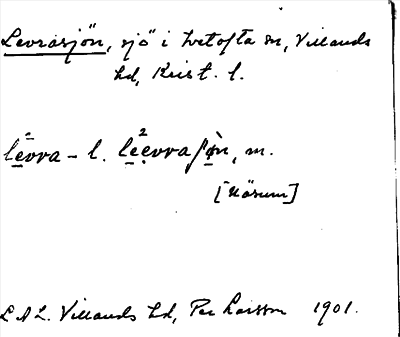 Levrasjön, sjö i Ivetofta sn, Villands
hd, Krist. l.
levra – l. leevraʃøn, m.
[Näsum]
L A L. Villands hd, Per Larsson 1901.